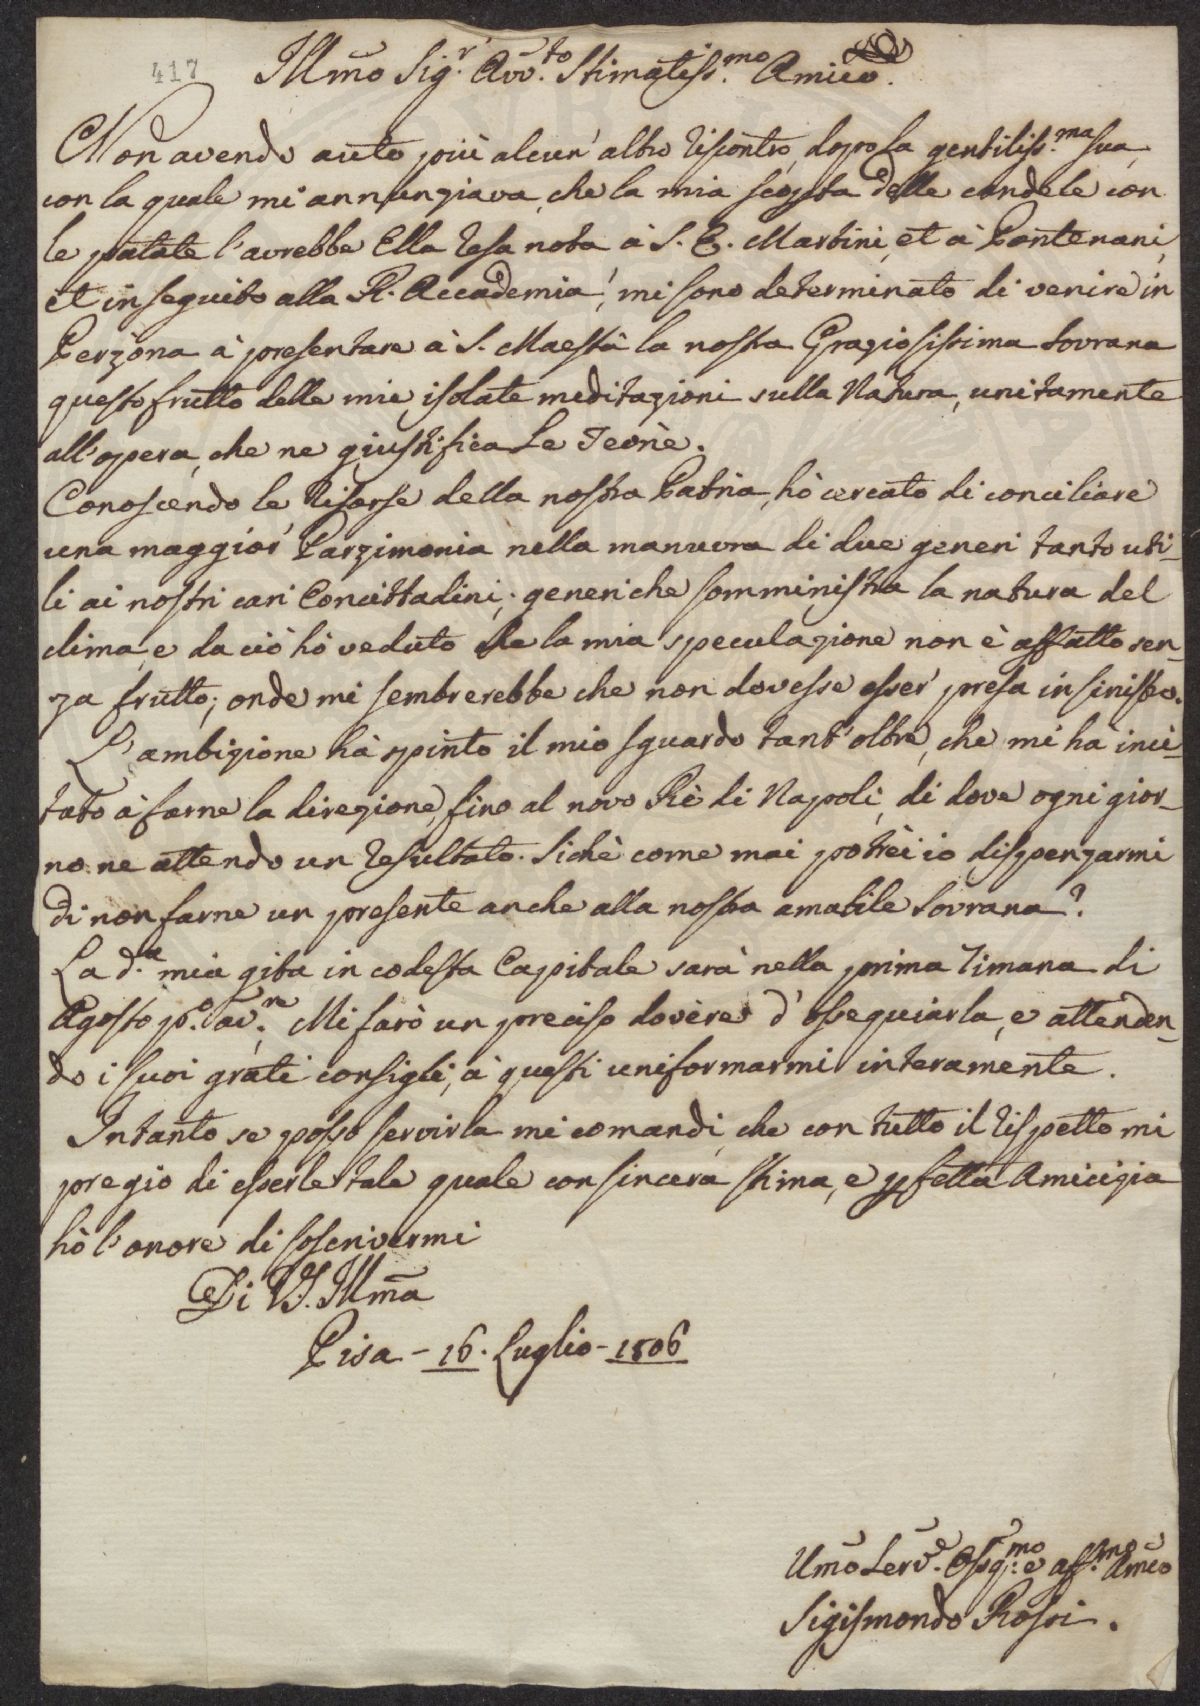 417
Ill̃mo Sig.r Avv.to Stimatiss.mo Amico.
Non avendo auto più alcun' altro riscontro, dopo la gentiliss.ma sua,
con la quale mi annunziava, che la mia scoperta delle candele con
le patate l'avrebbe Ella resa nota à S. E. Martini, et à Pontenani,
et in seguito alla R. Accademia, mi sono determinato di venire in
Perzona à presentare à S. Maestà la nostra Graziosissima Sovrana
questo frutto delle mie isolate meditazioni sulla Natura, unitamente
all'opera, che ne giustifica Le Teorie.
Conoscendo le Risorse della nostra Patria, hò cercato di conciliare
una maggior' Parzimonia nella manuvra di due generi tanto uti-
li ai nostri cari Concittadini; generi che somministra la natura del
clima, e da ciò hò veduto che la mia speculazione non è affatto sen-
za frutto; onde mi sembrerebbe che non dovesse esser' presa in sinistro.
L'ambizione hà spinto il mio sguardo tant' oltre, che mi hà inci-
tato à farne la direzione, fino al novo Rè di Napoli, di dove ogni gior-
no ne attendo un resultato. Sichè come mai potrei io dispenzarmi
di non farne un presente anche alla nostra amabile Sovrana?
La d.a mia gita in codesta Capitale sarà nella prima Timana di
Agosto p.o av.re Mi farò un preciso dovere d' ossequiarla, e attenden-
do i suoi grati consigli, à questi uniformarmi interamente.
Intanto se posso servirla mi comandi, che con tutto il rispetto mi
pregio di esserle tale quale con sincera stima, e pfetta Amicizia
hò l'onore di soscrivermi
Di V.S. Ill̃ma
Pisa - 16. Luglio - 1806
Um̃o Serv.e Osseq.mo e aff.mo Amico
Sigismondo Rossi.